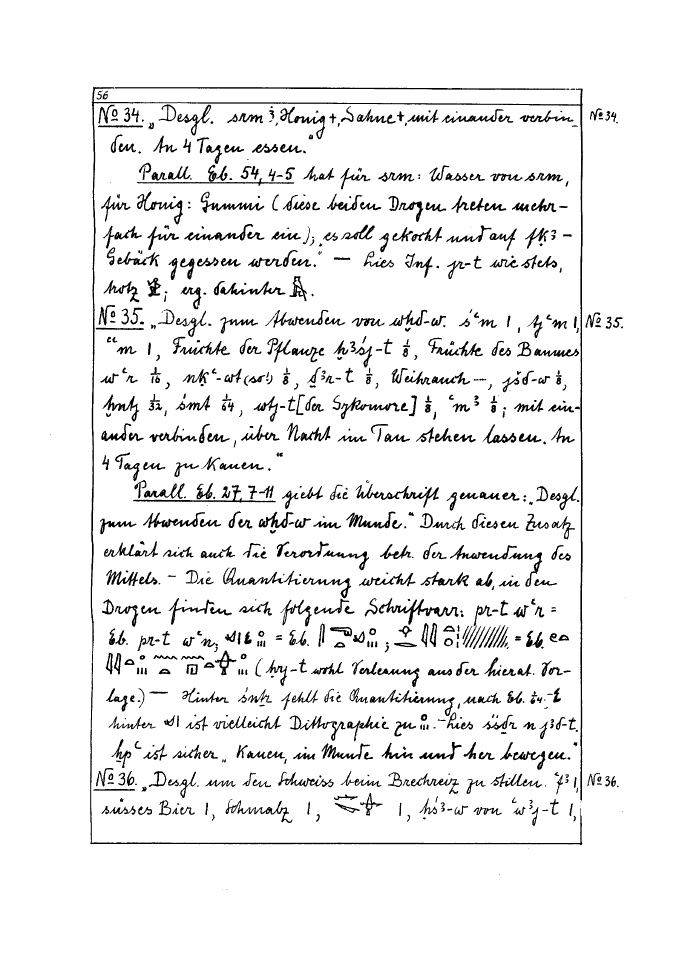 56
№ 34. „Desgl. srm ꜣ, Honig +, Sahne +, mit einander verbin-
№ 34.
den. An 4 Tagen essen."
Parall. Eb. 54, 4-5 hat für srm: Wasser von srm,
für Honig: Gummi (diese beiden Drogen treten mehr-
fach für einander ein); „es soll gekocht und auf fkꜣ-
Gebäck gegessen werden." — Lies Inf. jr-t wie stets,
trotz ; erg. dahinter .
№ 35. „Desgl. zum Abwenden von wḫd-w. śꜥm 1, ṯꜥm 1,
№ 35.
ꜥꜥm 1, Früchte der Pflanze ḫꜣśj-t 1/8, Früchte des Baumes
wꜥr 1/16, nkꜥ-wt (so!) 1/8, dꜣr-t 1/8, Weihrauch —, jšd-w 1/8,
ḥntj 1/32, śmt 1/64, wtj-t [der Sykomore] 1/8, ꜥmꜣ 1/8; mit ein-
ander verbinden, über Nacht im Tau stehen lassen. An
4 Tagen zu kauen."
Parall. Eb. 27, 7-11 giebt die Überschrift genauer: „Desgl.
zum Abwenden der wḫd-w im Munde." Durch diesen Zusatz
erklärt sich auch die Verordnung betr. der Anwendung des
Mittels. – Die Quantitierung weicht stark ab, in den
Drogen finden sich folgende Schriftvarr: pr-t wꜥr =
Eb. pr-t wꜥn; = Eb. ; = Eb.
( wohl Verlesung aus der hierat. Vor-
lage.) — Hinter śnṯr fehlt die Quantitierung, nach Eb. 1/64. –
hinter ist vielleicht Dittographie zu . – Lies śḏr n jꜣd-t.
ḥpꜥ ist sicher „Kauen, im Munde hin und her bewegen."
№ 36. „Desgl. um den Schweiss beim Brechreiz zu stillen. 1,
№ 36.
süsses Bier 1, Schmalz 1, 1, ḥśꜣ-w von ꜥwꜣj-t 1,